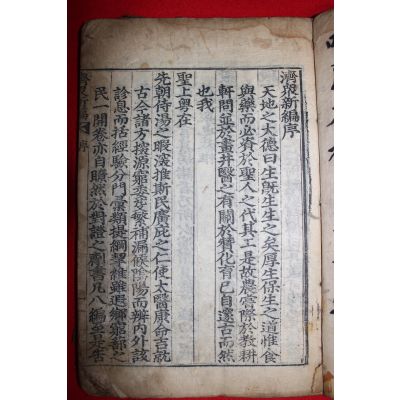 濟衆新編序
天地之大德曰生旣生生之矣厚生保生之道惟食
與藥而必資於聖人之代其工是故農官際於教耕
軒問並於畫井醫之有關於贊化育已自邃古而然
也我
聖上粤在
先朝侍湯之暇演推斯民廣庇之仁使太醫康命吉就
古今諸方探源窮委芟繁補漏候陰陽而辨内外該
診息而括經驗分門彙類提綱挈維雖遐鄉窮蔀之
民一開卷亦自瞭然於對證之劑書凡八編
濟衆新編 序